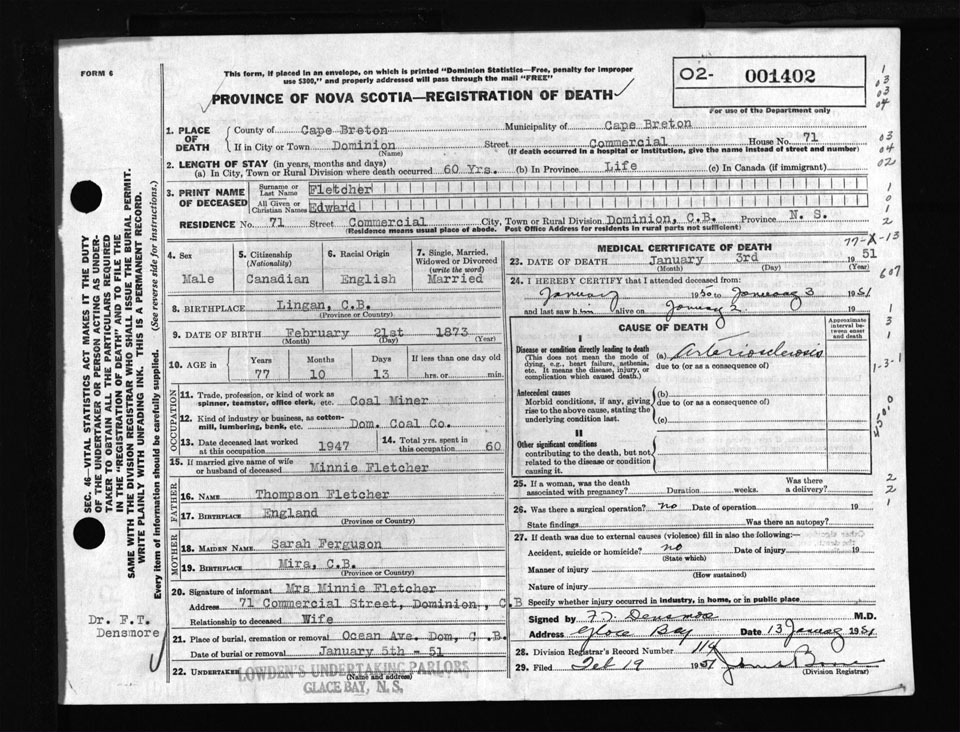 FORM 6
This form, if placed in an envelope, on which is printed "Dominion Statistics—Free, penalty for improper
use $300," and properly addressed will pass through the mail "FREE"
O2- 001402
For use of the Department only
PROVINCE OF NOVA SCOTIA—REGISTRATION OF DEATH
1. PLACE OF DEATH
County of Cape Breton Municipality of Cape Breton
If in City or Town Dominion Street Commercial House No. 71
(Name) (If death occurred in a hospital or institution, give the name instead of street and number)
2. LENGTH OF STAY (in years, months and days)
(a) In City, Town or Rural Division where death occurred 60 Yrs. (b) In Province Life (c) In Canada (if immigrant)
3. PRINT NAME OF DECEASED
Surname or Last Name Fletcher
All Given or Christian Names Edward
RESIDENCE No. 71 Street Commercial City, Town or Rural Division Dominion, C.B. Province N. S.
(Residence means usual place of abode. Post Office Address for residents in rural parts not sufficient)
4. Sex 5. Citizenship (Nationality) 6. Racial Origin 7. Single, Married, Widowed or Divorced (write the word)
Male Canadian English Married
8. BIRTHPLACE Lingan, C.B.
(Province or Country)
9. DATE OF BIRTH February 21st 1873
(Month) (Day) (Year)
10. AGE in Years Months Days If less than one day old
77 10 13 hrs. or min.
OCCUPATION
11. Trade, profession, or kind of work as spinner, teamster, office clerk, etc. Coal Miner
12. Kind of industry or business, as cotton-mill, lumbering, bank, etc. Dom. Coal Co.
13. Date deceased last worked at this occupation 1947 14. Total yrs. spent in this occupation 60
15. If married give name of wife or husband of deceased Minnie Fletcher
FATHER
16. NAME Thompson Fletcher
17. BIRTHPLACE England
(Province or Country)
MOTHER
18. MAIDEN NAME Sarah Ferguson
19. BIRTHPLACE Mira, C.B.
(Province or Country)
20. Signature of informant Mrs Minnie Fletcher
Address 71 Commercial Street, Dominion, C.B
Relationship to deceased Wife
21. Place of burial, cremation or removal Ocean Ave. Dom, C .B.
Date of burial or removal January 5th - 51
22. UNDERTAKER LOWDEN'S UNDERTAKING PARLORS
(Name and address)
GLACE BAY, N. S.
MEDICAL CERTIFICATE OF DEATH
23. DATE OF DEATH January 3rd 1951
(Month) (Day) (Year)
24. I HEREBY CERTIFY that I attended deceased from:
January 1950 to January 3 1951
and last saw him alive on January 2
CAUSE OF DEATH
Approximate interval between onset and death
I
Disease or condition directly leading to death
(This does not mean the mode of dying, e.g., heart failure, asthenia, etc. It means the disease, injury, or complication which caused death.)
(a) Arteriosclerosis
due to (or as a consequence of)
Antecedent causes
Morbid conditions, if any, giving rise to the above cause, stating the underlying condition last.
(b)
due to (or as a consequence of)
(c)
II
Other significant conditions
contributing to the death, but not related to the disease or condition causing it.
25. If a woman, was the death associated with pregnancy? Duration weeks. Was there a delivery?
26. Was there a surgical operation? no Date of operation 19
State findings Was there an autopsy?
27. If death was due to external causes (violence) fill in also the following:—
Accident, suicide or homicide? no Date of injury 19
(State which)
Manner of injury
(How sustained)
Nature of injury
Specify whether injury occurred in industry, in home, or in public place
Signed by F. T. Densmore M.D.
Address Glace Bay Date 13 January 1951
28. Division Registrar's Record Number 119
29. Filed Feb 19 1951
(Division Registrar)
SEC. 46—VITAL STATISTICS ACT MAKES IT THE DUTY
OF THE UNDERTAKER OR PERSON ACTING AS UNDER-
TAKER TO OBTAIN ALL THE PARTICULARS REQUIRED
IN THE "REGISTRATION OF DEATH" AND TO FILE THE
SAME WITH THE DIVISION REGISTRAR WHO SHALL ISSUE THE BURIAL PERMIT.
WRITE PLAINLY WITH UNFADING INK. THIS IS A PERMANENT RECORD.
Every item of information should be carefully supplied. (See reverse side for instructions.)
Dr. F.T.
Densmore
1
03
03
04
03
04
02
1
0
1
2
77-X-13
607
1
3
1
1-3-1
4500
2
2
1